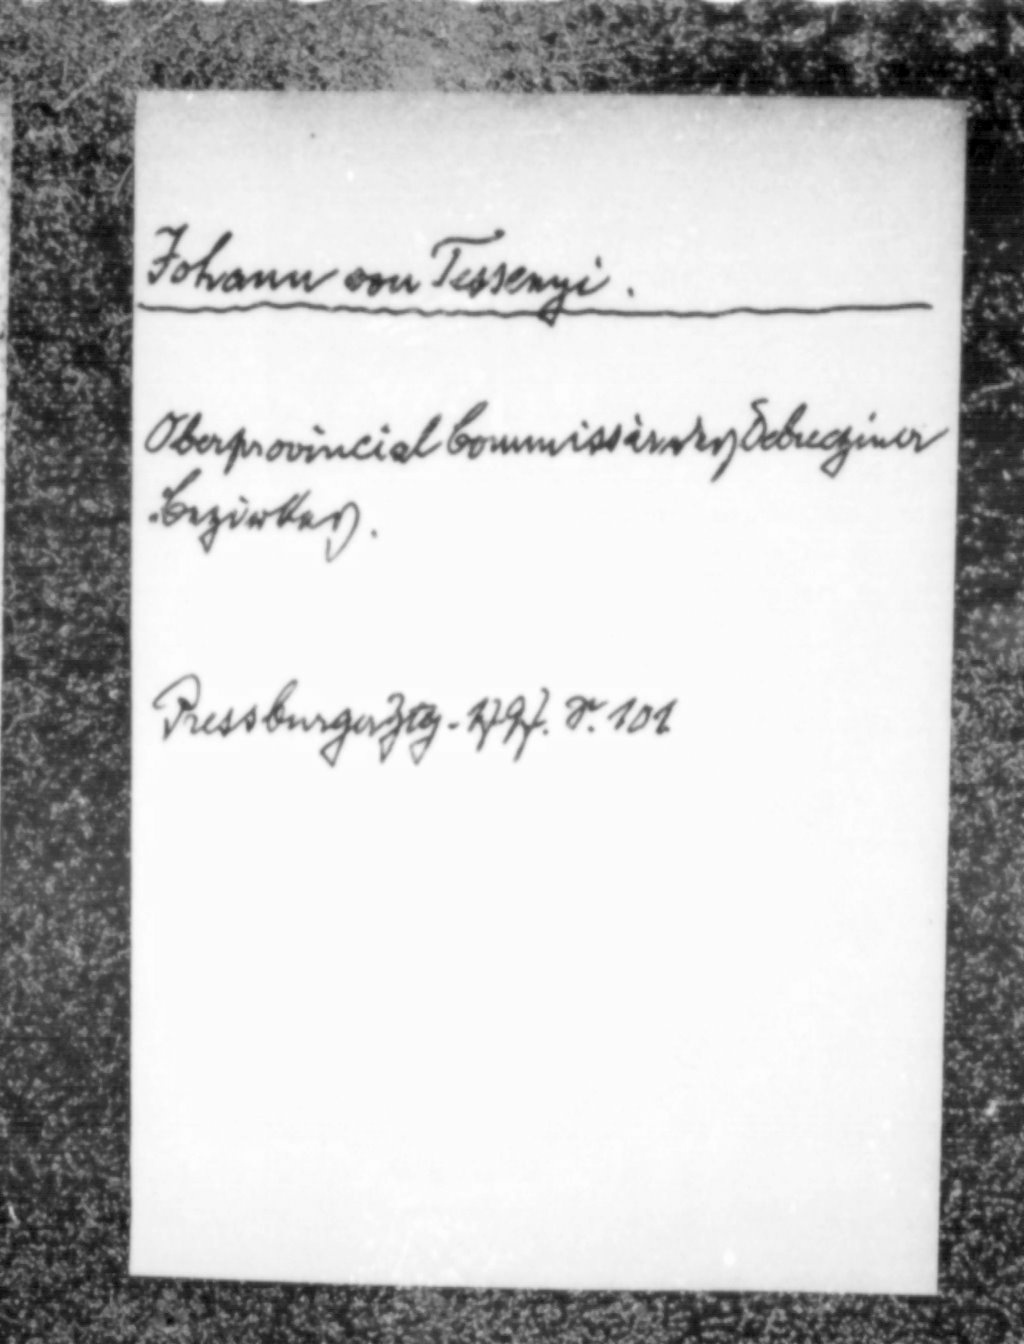 Johann von Tessenyi.
Oberprovincial Commissär des Debrecziner
Bezirkes.
Pressburger Ztg. 1797. N. 101